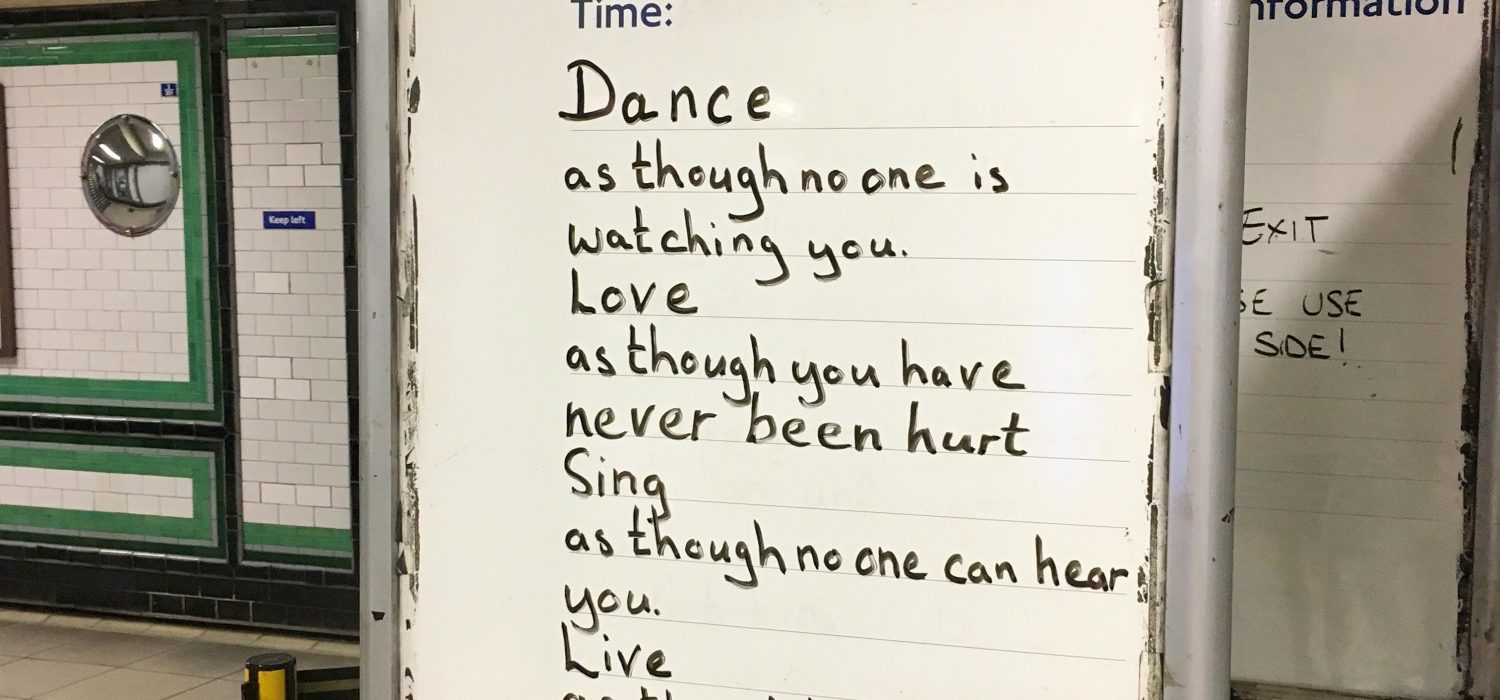 Time:
Dance
as though no one is
watching you.
Love
as though you have
never been hurt
Sing
as though no one can hear
you.
Live
Keep left
nformation
EXIT
SE USE
SIDE!